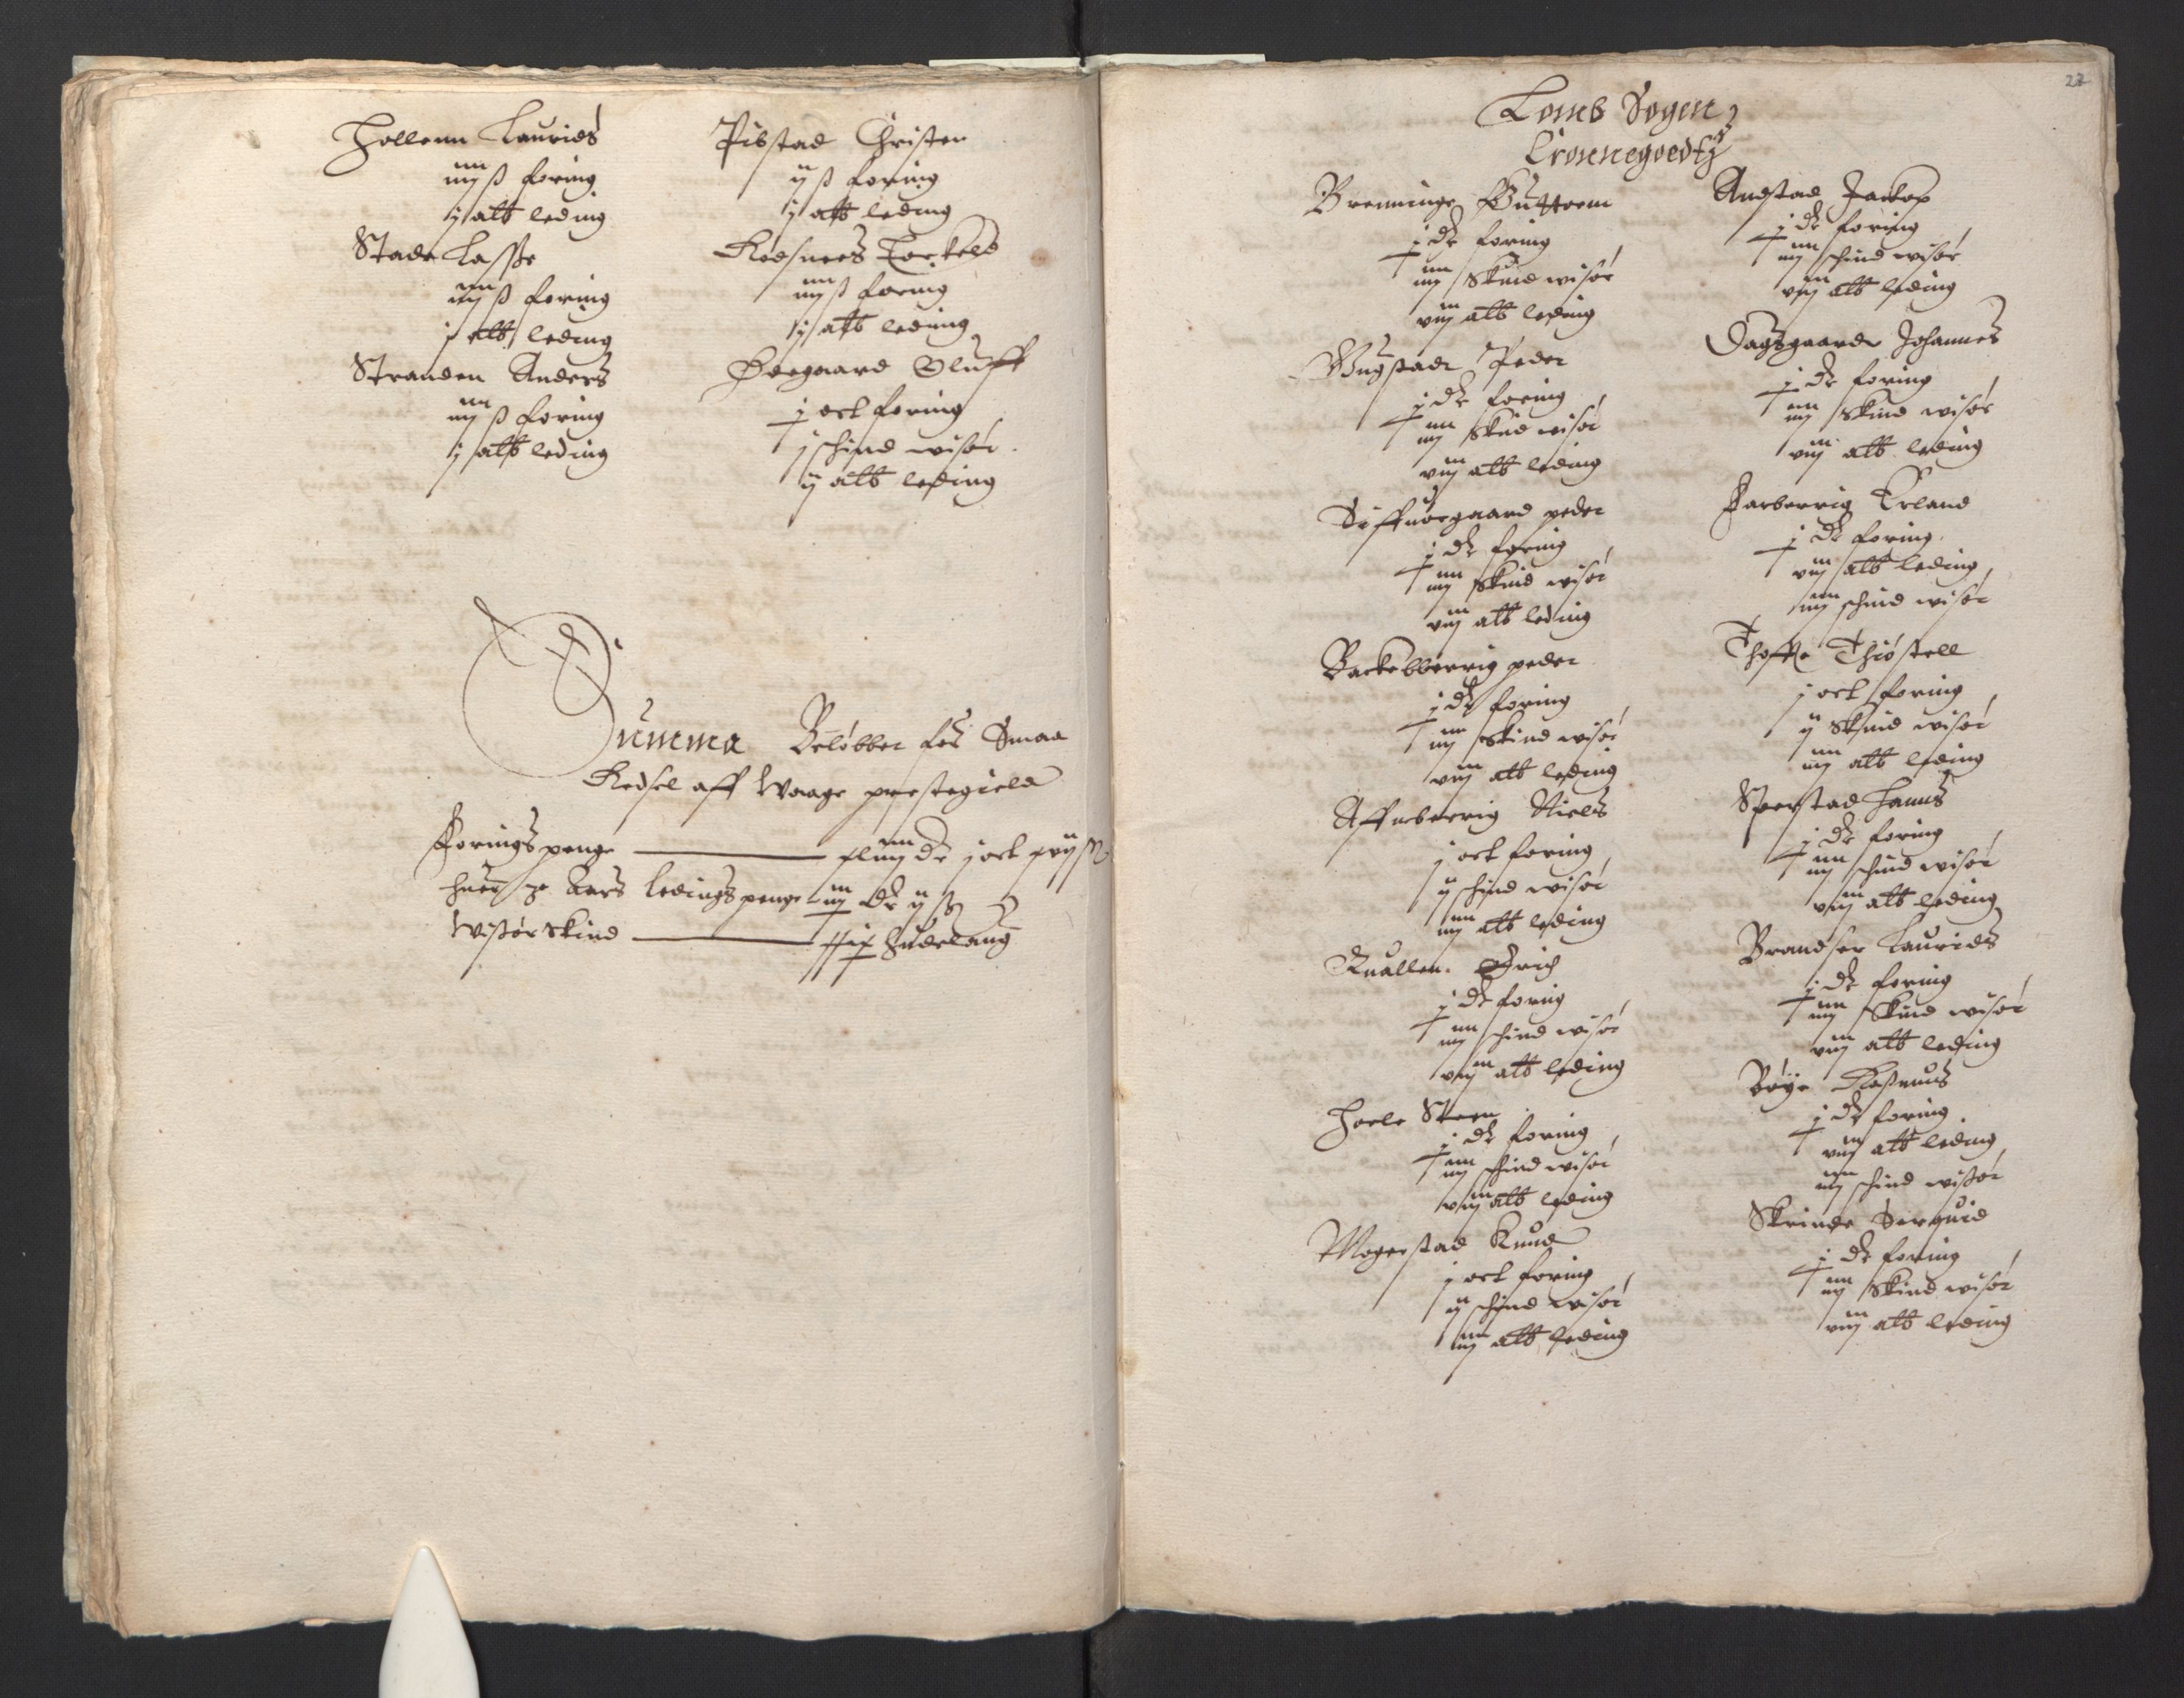 Hollenn Laurids
iiij ß foring
j alb leding
Stade Lasse
iiij ß foring
j alb leding
Stranden Anders
iiij ß foring
j alb leding
Pibstad Christen
ij ß foring
j alb leding
Redsnees Torkeld
iiij ß foring
j alb leding
Øergaard Oluff
j ort foring
j schind visør
ij alb leding
Summa Beløbber Smaa
Redsel aff Waage prestegield
Foringspenge dr j ort ß
huer 3e Aars ledingspenge iij dr ij ß
Wissør Skind
22
Lomb Sogen
Cronnegoedtz
Brenninge Guttorm
j dr foring
iiij Skind visør
viij alb leding
Wugstade Peder
j dr foring
iiij Skind visør
viij alb leding
Siffuorgaard peder
j dr foring
iiij Skind visør
viij alb leding
Backebberrig peder
j dr foring
iiij Skind visør
viij alb leding
Affueberrig Niels
j ort foring
ij schind visør
iiij alb leding
Kuallen Erich
j dr foring
iiij schind visør
viij alb leding
Hoele Steen
j dr foring
iiij schind visør
viij alb leding
Mogerstad Knud
j ort foring
ij schind visør
iiij alb leding
Andstad Jackop
j dr foring
iiij schind visør
viij alb leding
Dagsgaard Johannes
j dr foring
iiij Skind visør
viij alb leding
Farberrig Erland
j dr foring
viij alb leding
iiij schind visør
Thoffte Thióstell
j ort foring
ij Skind visør
iiij alb leding
Sperstad Hanns
j dr foring
iiij schind visør
viij alb leding
Brandser Laurids
j dr foring
iiij Skind visør
viij alb leding
Bøye Rasmus
j dr foring
viij alb leding
iiij schind wissør
Skrinde Siguid
j dr foring
iiij Skind visør
viij alb leding